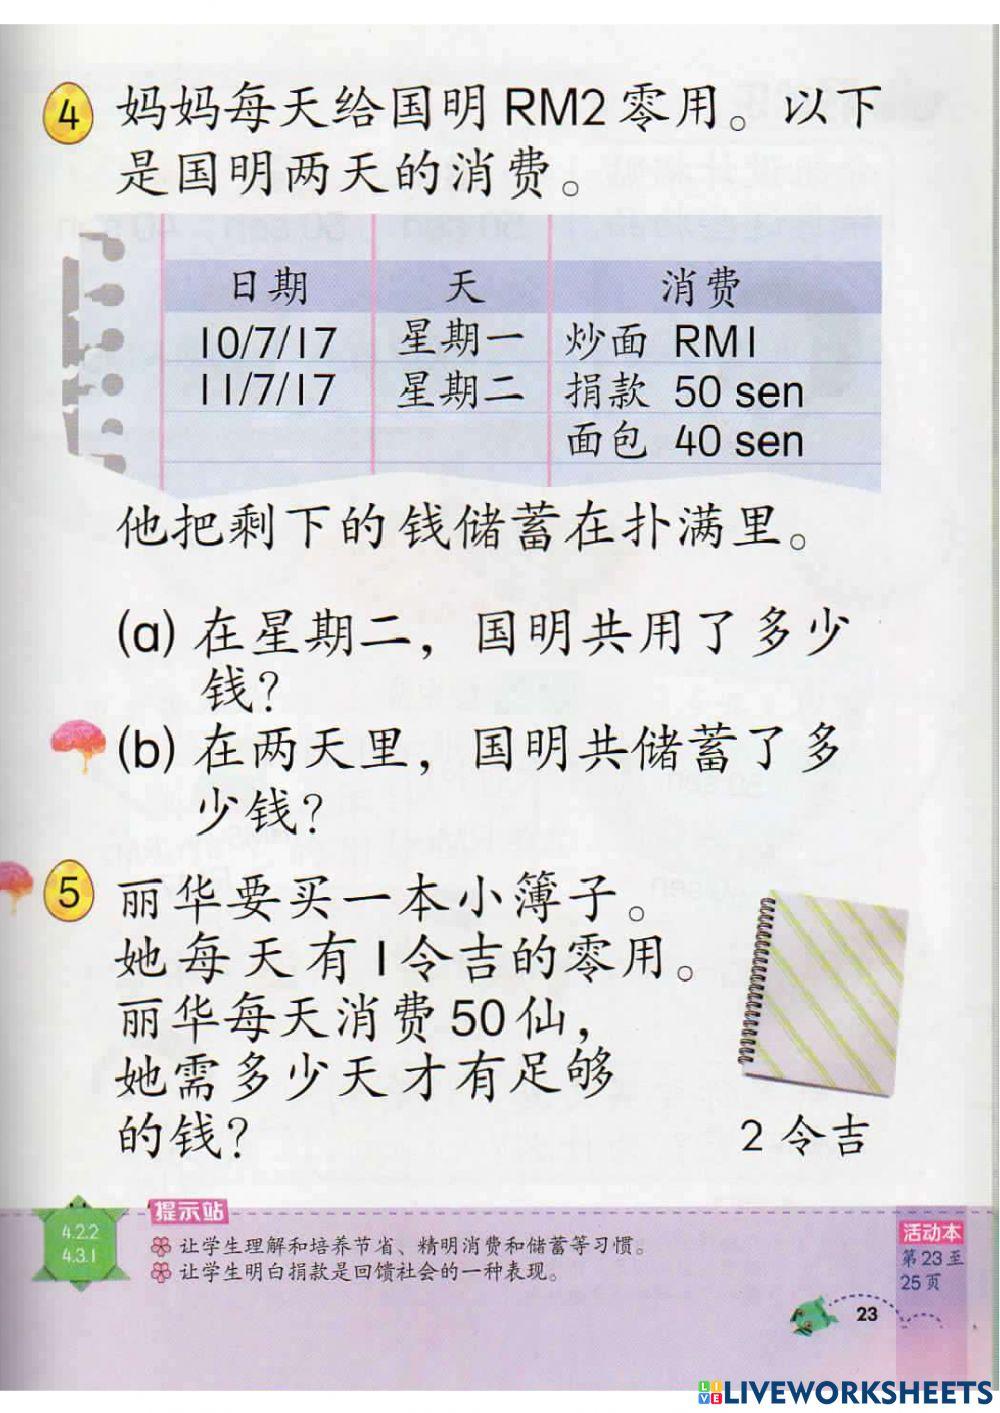 4 妈妈每天给国明 RM2 零用。以下
是国明两天的消费。
日期 天 消费
10/7/17 星期一 炒面 RM1
11/7/17 星期二 捐款 50 sen
面包 40 sen
他把剩下的钱储蓄在扑满里。
(a) 在星期二，国明共用了多少
钱？
(b) 在两天里，国明共储蓄了多
少钱？
5 丽华要买一本小簿子。
她每天有1令吉的零用。
丽华每天消费50仙，
她需多少天才有足够
的钱？
2 令吉
4.2.2
4.3.1
提示站
让学生理解和培养节省、精明消费和储蓄等习惯。
让学生明白捐款是回馈社会的一种表现。
活动本
第23至
25页
23
LIVE LIVEWORKSHEETS